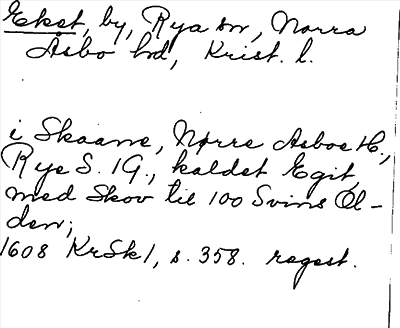 Ekst, by, Rya sn, Norra
Åsbo hd, Krist. l.
i Skaane, Nørre Asboe H.,
Rye S. 1 G., kaldet Egit,
med Skov til 100 Svins Ol-
den;
1608 KrSk1, s. 358. regest.